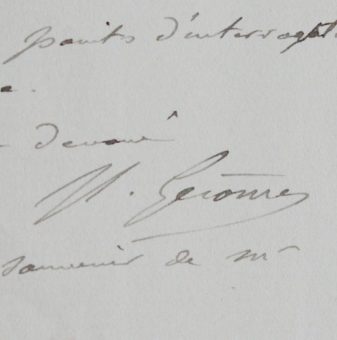 points d'interrogat
e.
devoué
Gérome
souvenir de mr